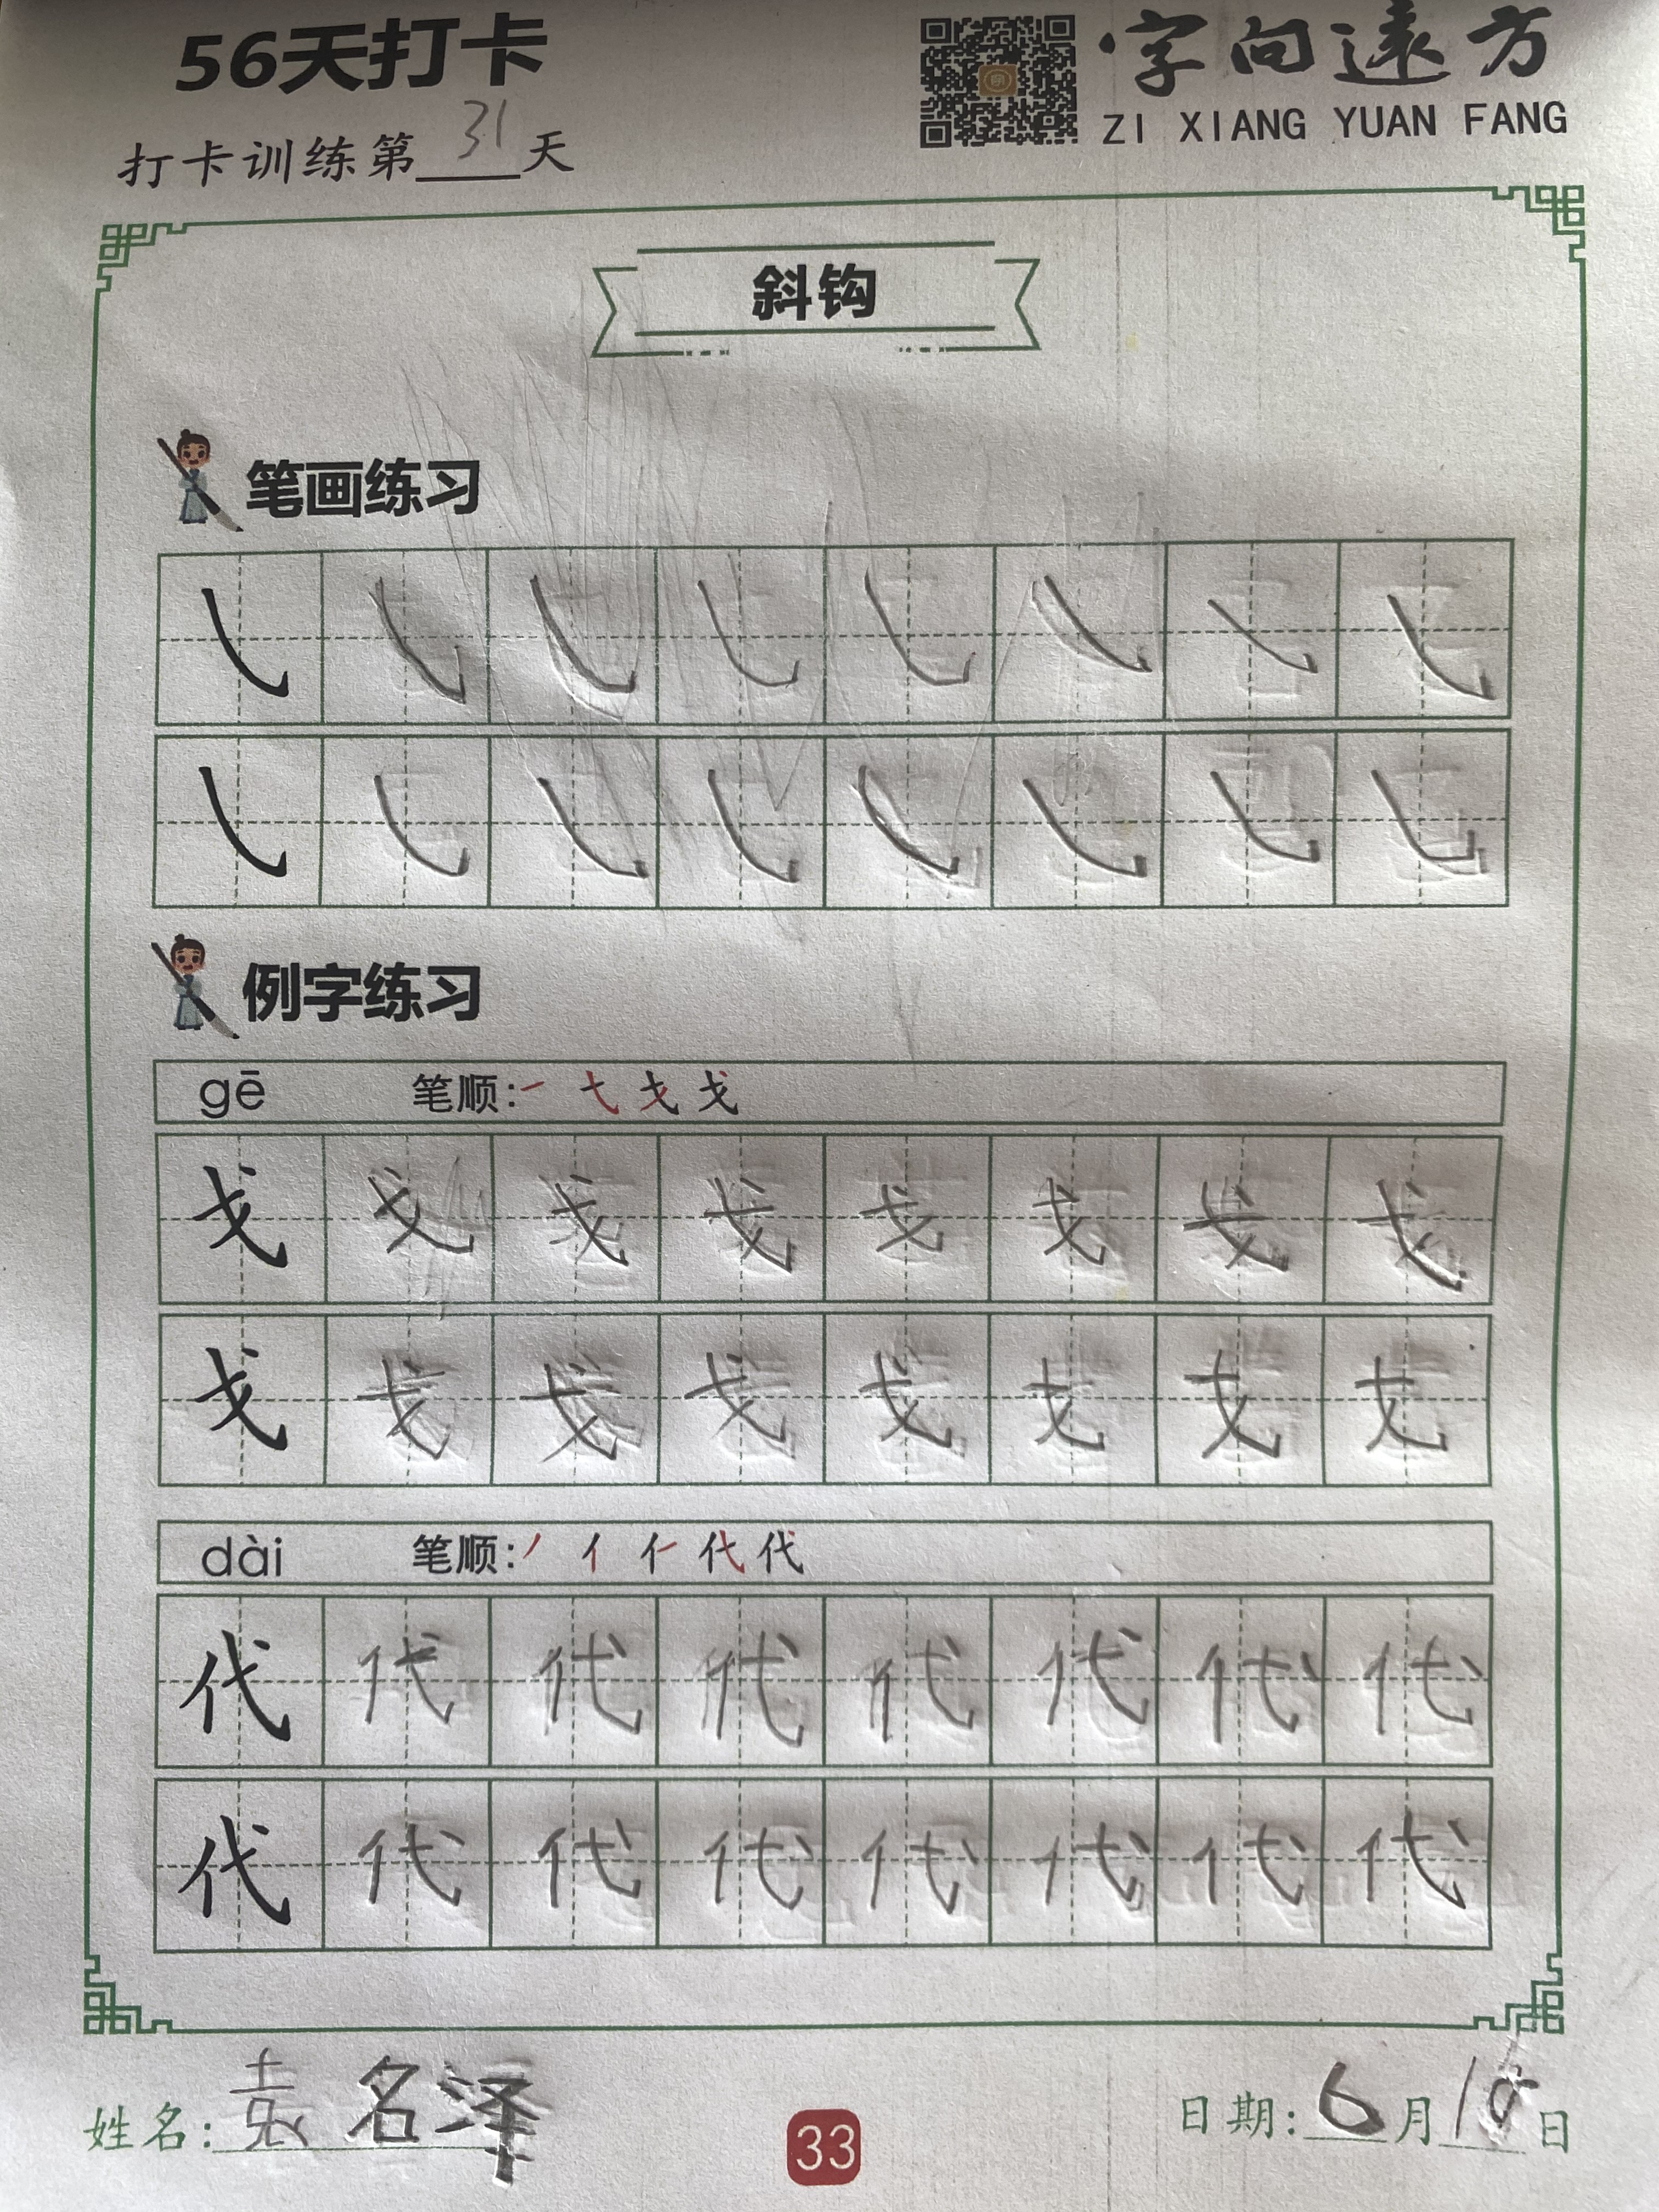 56天打卡
字向遠方
ZI XIANG YUAN FANG
打卡训练第31天
斜钩
笔画练习
例字练习
gē 笔顺:
戈 戈 戈 戈 戈 戈 戈 戈
戈 戈 戈 戈 戈 戈 戈 戈
dài 笔顺:
代 代 代 代 代 代 代 代
代 代 代 代 代 代 代 代
姓名:袁名泽
33
日期:6月 日